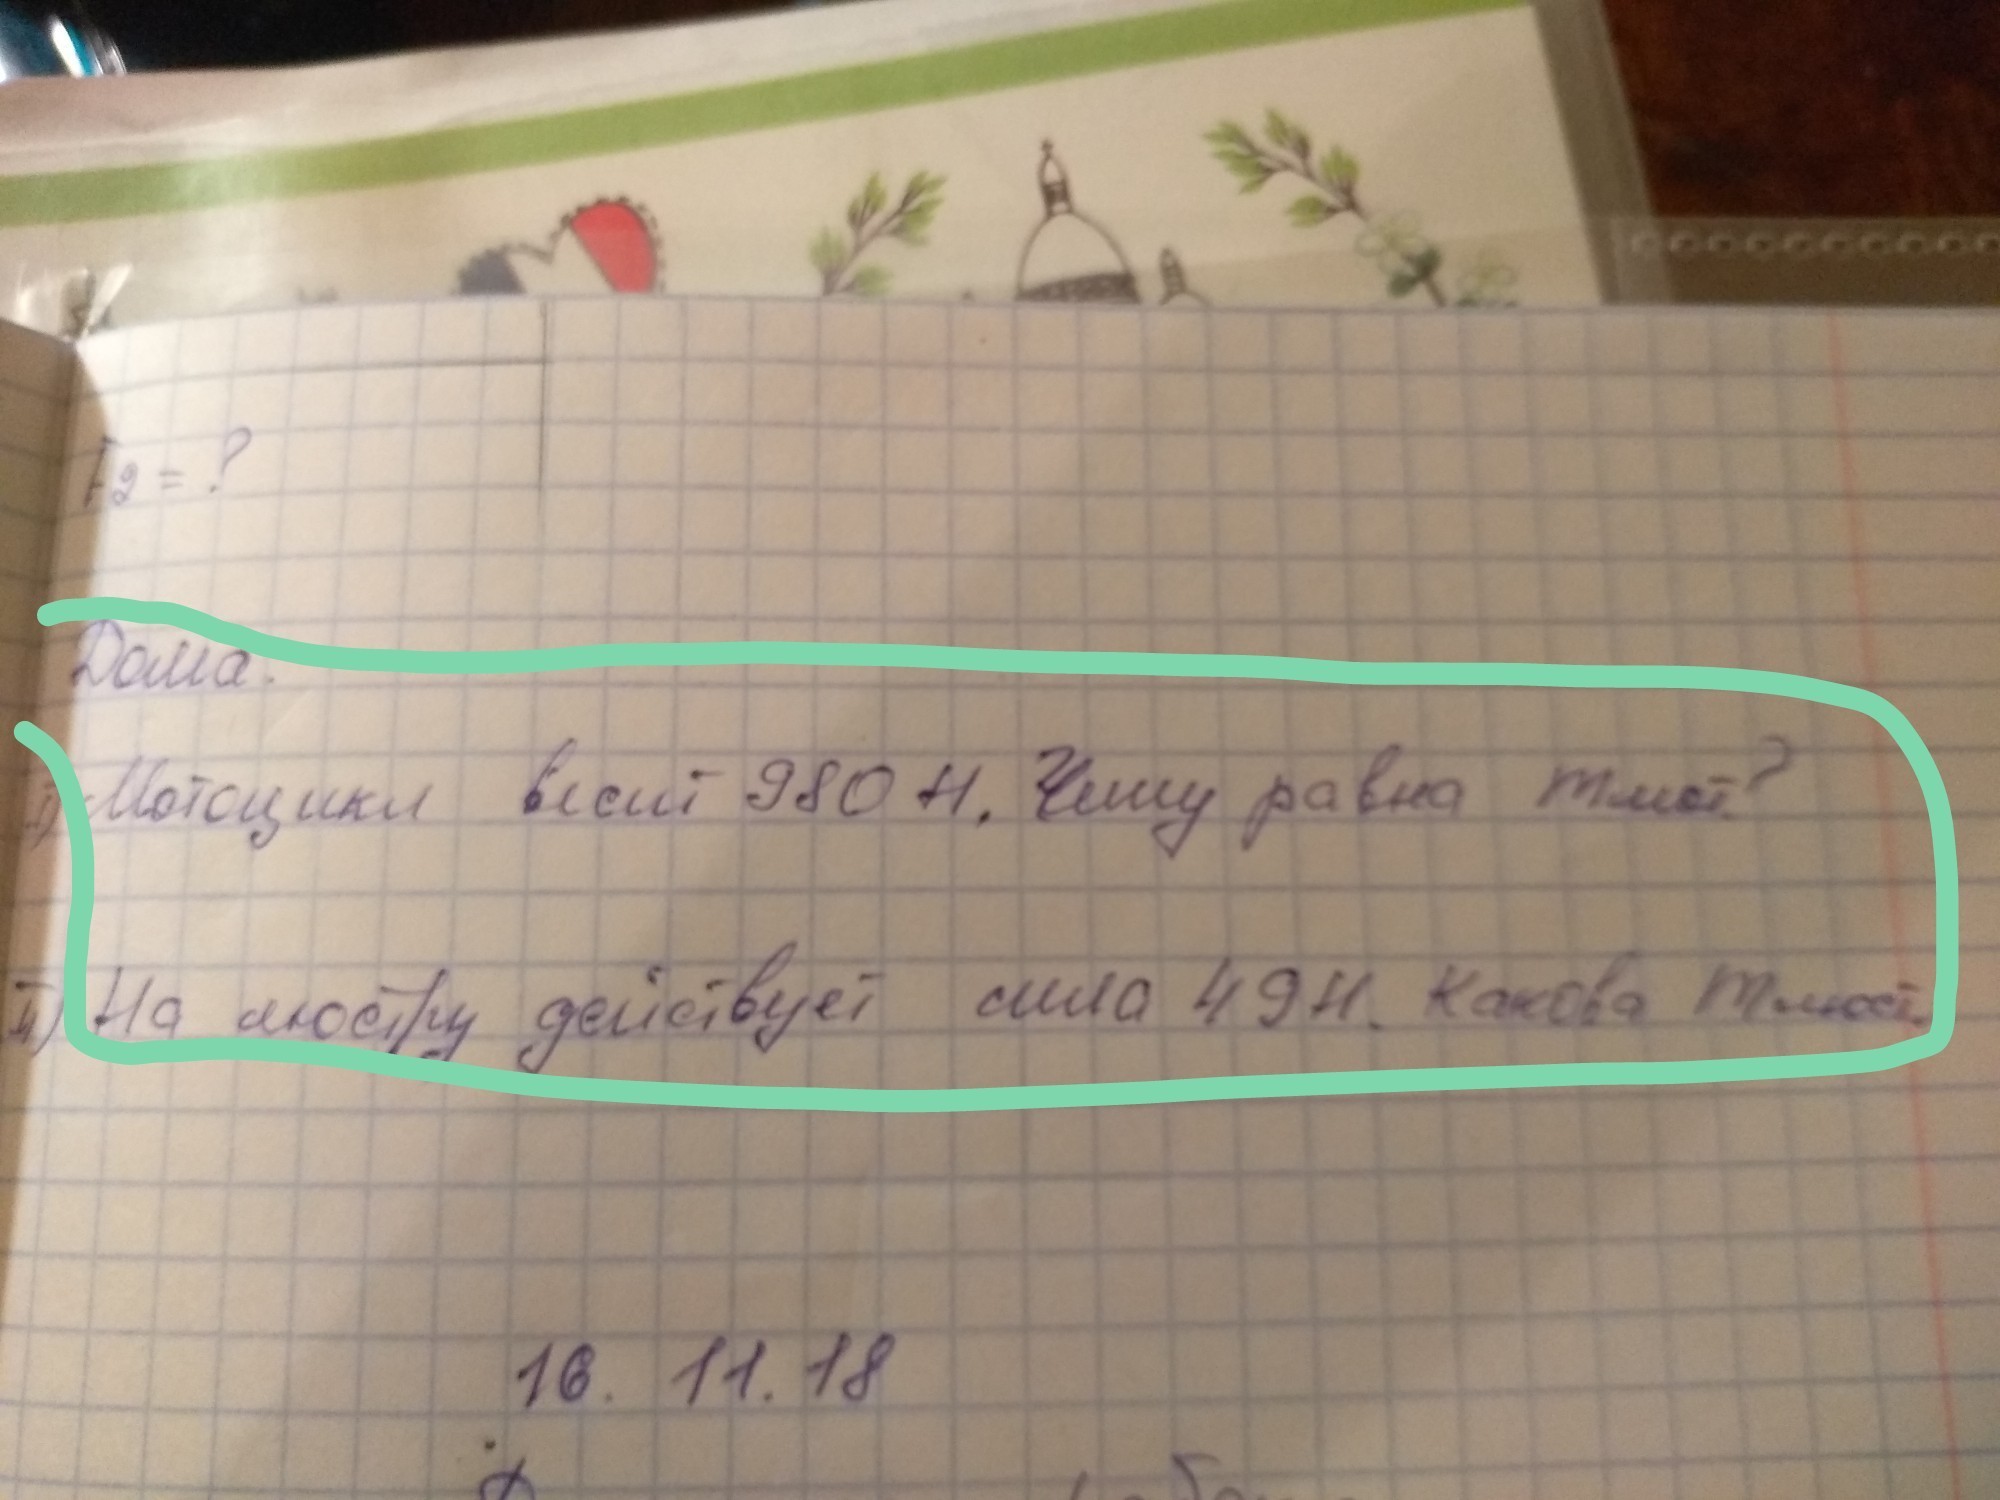 F₂ = ?
Дома.
I) Мотоцикл весит 980 Н. Чему равна mмот.?
II) На люстру действует сила 49 Н. Какова mлюст.
16. 11. 18